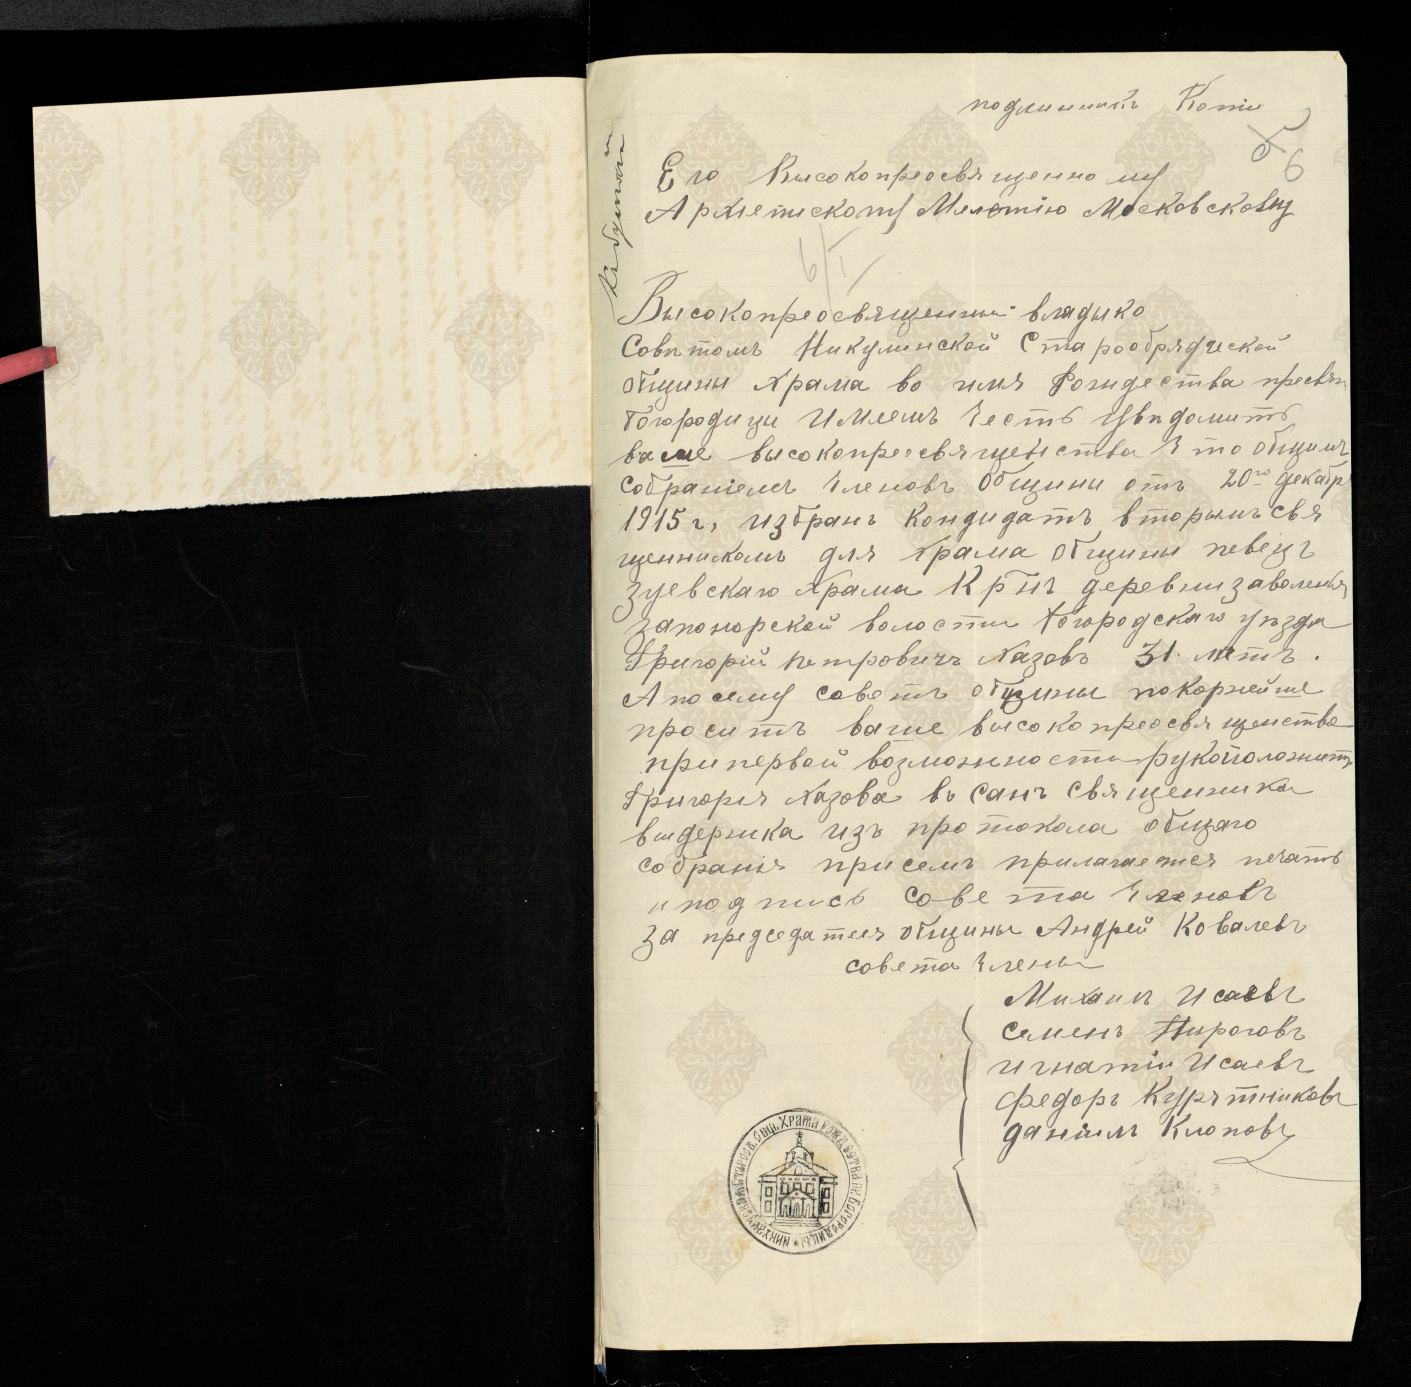 подлинникъ Копiи
6
Его Высокопреосвященному
Архiепископу Мелетiю Московскому
6/I
Высокопреосвященный владыко
Советомъ Никулинской Старообрядческой
общины Храма во имя Рождества пресвят
Богородицы Имеемъ Честь Увѣдомить
ваше высокопреосвященства Что общимъ
собранiемъ Членовъ общины отъ 20го декабр
1915 г, избранъ Кондидатъ вторымъ свя
щенникомъ для Храма общины певецъ
зуевскаго Храма Крнъ деревни заволенья
запонорской волости Богородскаго уѣзда
Григорiй петровичъ Хазовъ 31. летъ.
А посему советъ общины покорнейше
проситъ ваше высокопреосвященство
при первой возможности рукоположить
Григорiя Хазова въ санъ священника
выдержка изъ протокола общаго
собранiя присемъ прилагается печать
и подпись совета Членовъ
За председателя общины Андрей Ковалевъ
совета Члены
Михаилъ Исаевъ
Семенъ Пироговъ
Игнатiи Исаевъ
Федоръ Курятниковъ
данiилъ Клоповъ
Никулинская Старооб. общ. Храма Рождества Пр. Богородицы